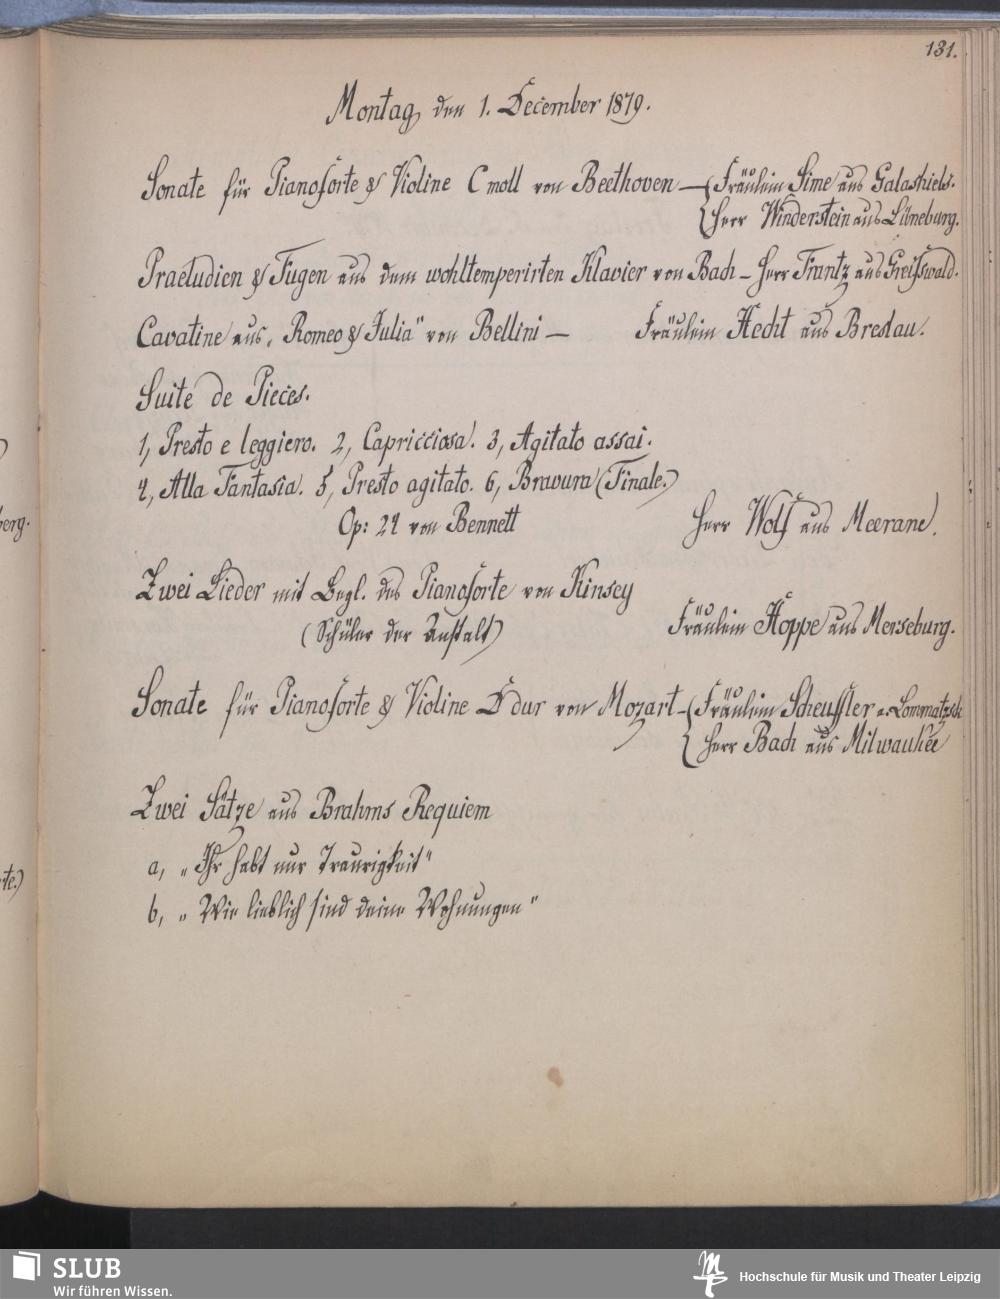 131.
Montag, den 1. December 1879.
Sonate für Pianoforte & Violine C moll von Beethoven — { Fräulein Sime aus Galashiels.
{ Herr Winderstein aus Lüneburg.
Praeludien & Fugen aus dem wohltemperirten Klavier von Bach – Herr Frantz aus Greifswald.
Cavatine aus „Romeo & Julia" von Bellini — Fräulein Hecht aus Breslau.
Suite de Pieces.
1, Presto e leggiero. 2, Capricciosa. 3, Agitato assai.
4, Alla Fantasia. 5, Presto agitato. 6, Bravura (Finale.)
Op: 24 von Bennett Herr Wolf aus Meerane.
Zwei Lieder mit Begl. des Pianoforte von Kinsey
(Schüler der Anstalt) Fräulein Hoppe aus Merseburg.
Sonate für Pianoforte & Violine D dur von Mozart – { Fräulein Scheuffler a. Lommatzsch
{ Herr Bach aus Milwaukee
Zwei Sätze aus Brahms Requiem
a, „Ihr habt nur Traurigkeit"
b, „Wie lieblich sind deine Wohnungen"
berg.
te.)
SLUB
Wir führen Wissen.
Hochschule für Musik und Theater Leipzig